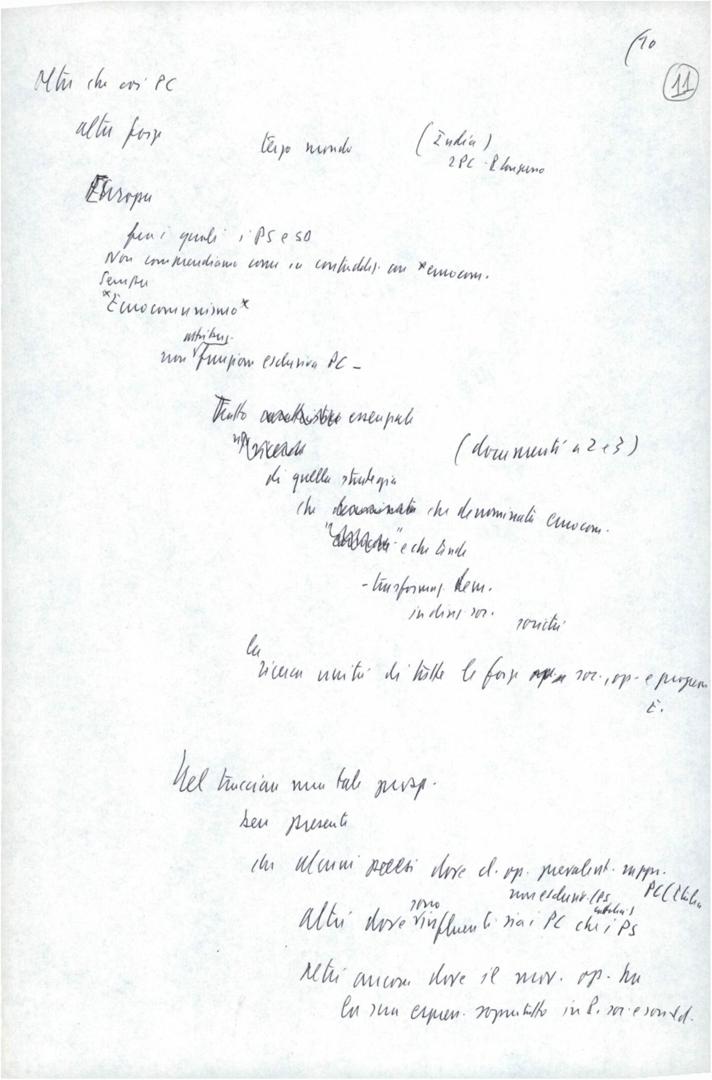 (10
11
Altri che così PC
altre forze
terzo mondo (India)
2PC - Il Congresso
Europa
fra i quali i PS e SD
Non comprendiamo come in contradds. con "eurocom.
Sempre
"Eurocomunismo"
attribuz.
non funzione esclusiva PC -
Tratto essenziale
ricerca (documenti a 2 e 3)
di quella strategia
che che denominata eurocom.
e che tende
- trasformaz. dem.
in direz. soc. società
la
ricerca unità di tutte le forze soc., op. e progress.
E.
Nel tracciare una tale prosp.
ben presente
che alcuni paesi dove cl. op. prevalent. rappr.
non esclusiv. (PS PC (Italia
altri dove influenti sia i PC che i PS
sono
Altri ancora dove il mov. op. ha
la sua espress. soprattutto in P. soc. e sociald.